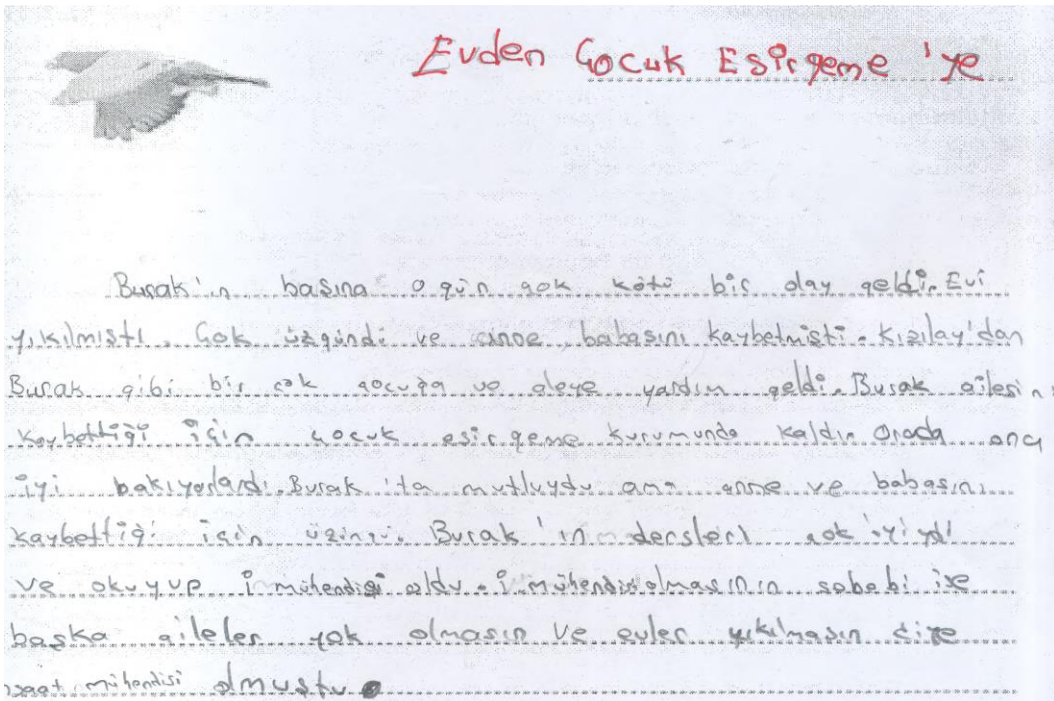 Evden Çocuk Esirgeme'ye
Burak'ın başına o gün çok kötü bir olay geldi. Evi
yıkılmıştı. Çok üzgündi ve anne, babasını kaybetmişti. Kızılay'dan
Burak gibi bir çok çocuğa ve aleye yardım geldi. Burak ailesin
kaybettiği için çocuk esirgeme kurumunda kaldı. Orada ona
iyi bakıyorlardı. Burak'ta mutluydu ama anne ve babasını
kaybettiği için Burak'ın dersleri çok iyiydi
ve okuyup mühendisi oldu. olmasının sebebi ise
başka aileler yok olmasın ve evler yıkılmasın diye
mühendisi olmuştu.